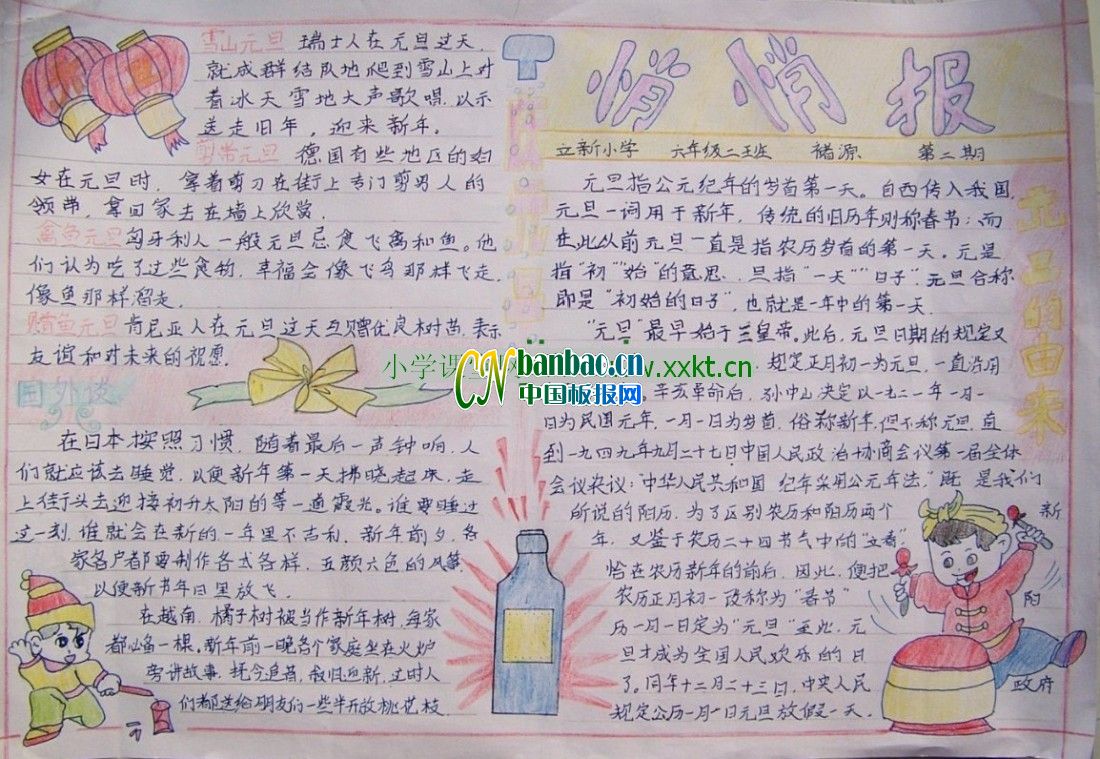 悄悄报
立新小学 六年级二班 褚源 第二期
元旦的由来
元旦指公元纪年的岁首第一天。自西传入我国,
元旦一词用于新年，传统的旧历年则称春节；而
在此以前元旦一直是指农历岁首的第一天。元是
指“初”“始”的意思，旦指“一天”“日子”元旦合称
即是“初始的日子”，也就是一年中的第一天
“元旦”最早始于三皇帝。此后，元旦日期的规定又
规定正月初一为元旦，一直沿用
辛亥革命后，孙中山决定以一九二一年一月一
日为民国元年，一月一日为岁首，俗称新年，但不称元旦，直
到一九四九年九月二十七日中国人民政治协商会议第一届全体
会议决议：“中华人民共和国纪年采用公元年法。”既是我们
所说的阳历，为了区别农历和阳历两个新
年，又鉴于农历二十四节气中的“立春”
恰在农历新年的前后，因此，便把
农历正月初一改称为“春节”阳
历一月一日定为“元旦”至此，元
旦才成为全国人民欢乐的日
了。同年十二月二十三日，中央人民政府
规定公历一月一日元旦放假一天。
雪山元旦 瑞士人在元旦过天，
就成群结队地爬到雪山上对
着冰天雪地大声歌唱，以示
送走旧年，迎来新年。
剪带元旦 德国有些地区的妇
女在元旦时，拿着剪刀在街上专门剪男人的
领带，拿回家去在墙上欣赏。
禽鱼元旦 匈牙利人一般元旦忌食飞禽和鱼。他
们认为吃了这些食物，幸福会像飞鸟那样飞走,
像鱼那样溜走。
肯尼亚人在元旦这天互赠优良树苗，表示
友谊和对未来的祝愿
国外
在日本按照习惯，随着最后一声钟响，人
们就应该去睡觉，以便新年第一天拂晓起床，走
上街头去迎接初升太阳的第一道霞光。谁要睡过
这一刻，谁就会在新的一年里不吉利，新年前夕，各
家各户都要制作各式各样，五颜六色的风筝，
以便新年节日里放飞。
在越南，橘子树被当作新年树，每家
都必备一棵。新年前一晚各个家庭坐在火炉
旁讲故事，抚今追昔，叙旧迎新，这时人
们都送给朋友们一些半开放桃花枝
小学课 www.xxkt.cn
CN banbao.cn
中国板报网